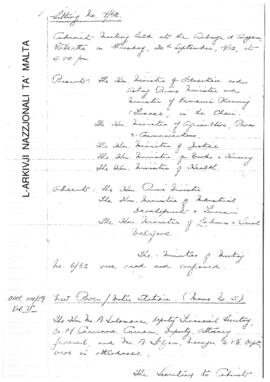 L-ARKIVJI NAZZJONALI TA' MALTA
Sitting No. 7/62.
Cabinet Meeting held at the Auberge d'Aragon
Valletta on Thursday, 20th September, 1962, at
6.00 pm.
Present: The Hon. Minister of Education and
Acting Prime Minister and
Minister of Economic Planning
& Finance, in the Chair.
The Hon Minister of Agriculture, Power
& Communications
The Hon Minister of Justice
The Hon Minister of Works & Housing
The Hon. Minister of Health.
Absent: The Hon. Prime Minister
The Hon. Minister of Industrial
Development & Tourism
The Hon. Minister of Labour & Social
Welfare.
The Minutes of Meeting
No. 6/62 were read and confirmed.
New Power/Water Station. (Memo No. 5)
The Hon. Mr. A. Deputy Financial Secretary,
Deputy Attorney
General, and Mr. Manager W & E. Dept,
were in attendance.
The Secretary to Cabinet